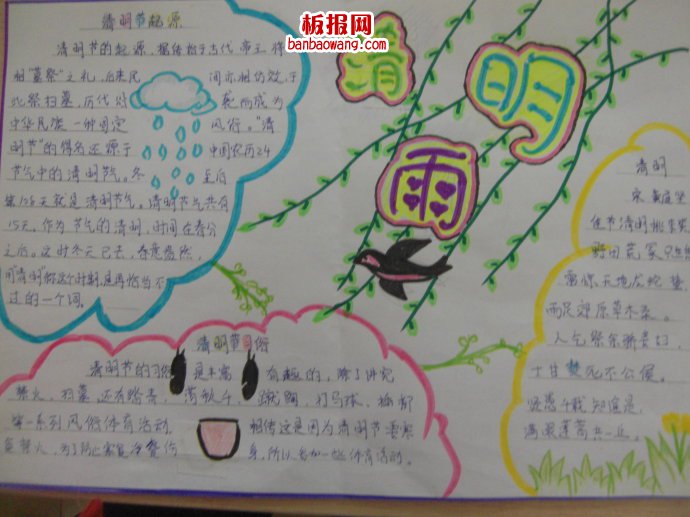 板报网
banbaowang.com
清明雨
清明节起源
清明节的起源,据传始于古代帝王将
相"墓祭"之礼,后来民间亦相仿效,于
此祭扫墓,历代沿袭而成为
中华民族一种固定风俗。"清
明节"的得名还源于中国农历24
节气中的清明节气。冬至后
第108天就是清明节气,清明节气共有
15天。作为节气的清明,时间在春分
之后。这时冬天已去,春意盎然,
用"清明"称这个时期是再恰当不
过的一个词。
清明节习俗
清明节的习俗是丰富有趣的,除了讲究
禁火、扫墓,还有踏青、荡秋千、蹴鞠、打马球、插柳
等一系列风俗体育活动。相传这是因为清明节要寒
食禁火,为了防止寒食冷餐伤身,所以参加一些体育活动。
清明
宋 黄庭坚
佳节清明桃李笑
野田荒冢只生愁
雷惊天地龙蛇蛰
雨足郊原草木柔。
人乞祭余骄妾妇,
士甘焚死不公侯。
贤愚千载知谁是,
满眼蓬蒿共一丘。